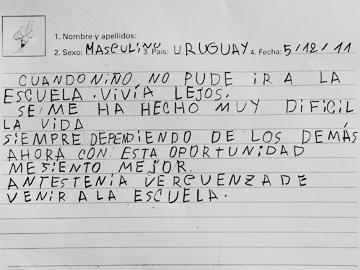 1. Nombre y apellidos:
2. Sexo: MASCULINO 3. País: URUGUAY 4. Fecha: 5/12/11
CUANDO NIÑO NO PUDE IR A LA
ESCUELA. VIVÍA LEJOS.
SE ME HA HECHO MUY DIFICIL
LA VIDA
SIEMPRE DEPENDIENDO DE LOS DEMÁS
AHORA CON ESTA OPORTUNIDAD
ME SIENTO MEJOR.
ANTES TENÍA VERGUENZA DE
VENIR A LA ESCUELA.